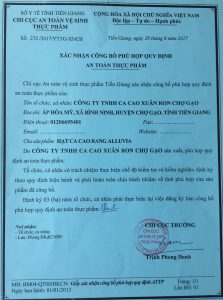 SỞ Y TẾ TỈNH TIỀN GIANG
CHI CỤC AN TOÀN VỆ SINH
THỰC PHẨM
CỘNG HÒA XÃ HỘI CHỦ NGHĨA VIỆT NAM
Độc lập - Tự do - Hạnh phúc
Số: 272/2017/YTTG-XNCB
Tiền Giang, ngày 28 tháng 8 năm 2017
XÁC NHẬN CÔNG BỐ PHÙ HỢP QUY ĐỊNH
AN TOÀN THỰC PHẨM
Chi cục An toàn vệ sinh thực phẩm Tiền Giang xác nhận công bố phù hợp quy định
an toàn thực phẩm của:
Tên tổ chức, cá nhân: CÔNG TY TNHH CA CAO XUÂN RON CHỢ GẠO
Địa chỉ: ẤP HÒA MỸ, XÃ BÌNH NINH, HUYỆN CHỢ GẠO, TỈNH TIỀN GIANG
Điện thoại: 01206695401 Fax:
Email:
Cho sản phẩm: HẠT CA CAO RANG ALLUVIA
Do CÔNG TY TNHH CA CAO XUÂN RON CHỢ GẠO sản xuất, phù hợp quy
định an toàn thực phẩm.
Tổ chức, cá nhân có trách nhiệm thực hiện chế độ kiểm tra và kiểm nghiệm định
kỳ theo quy định hiện hành và phải hoàn toàn chịu trách nhiệm về tính phù hợp của sản
phẩm đã công bố.
Định kỳ 03 (ba) năm tổ chức, cá nhân phải thực hiện lại việc đăng ký bản công bố
phù hợp quy định an toàn thực phẩm.
Nơi nhận:
- Tổ chức, cá nhân;
- Lưu: Phòng ĐK&CNSP.
Trịnh Phong Danh
Giấy xác nhận công bố phù hợp quy định ATTP
Trang: 1/1
Ngày ban hành: 01/01/2013
Lần BH: 01